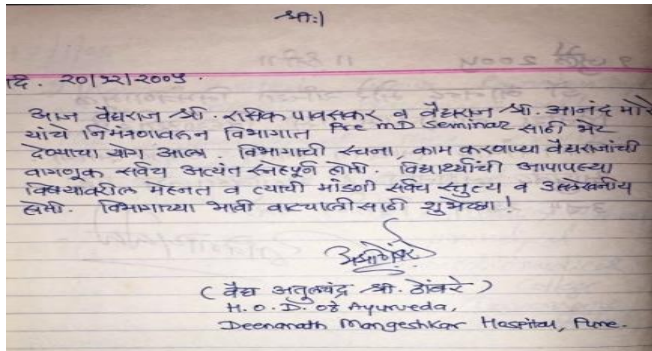 श्री:।
दि. २०/१२/२००५.
आज वैद्यराज श्री. रसिक पावसकर व वैद्यराज श्री. आनंद मोरे
यांचे निमंत्रणावरुन विभागात Pre MD Seminar साठी भेट
देण्याचा योग आला. विभागाची रचना, काम करणाऱ्या वैद्यराजांची
वागणूक सर्वच अत्यंत स्नेहपूर्ण होती. विद्यार्थ्यांची आपापल्या
विषयावरील मेहनत व त्याची मांडणी सर्वच स्तुत्य व उल्लेखनीय
होती. विभागाच्या भावी वाटचालीसाठी शुभेच्छा!
(वैद्य अतुलचंद्र श्री. ठोंबरे)
H.O.D. of Ayurveda,
Deenanath Mangeshkar Hospital, Pune.